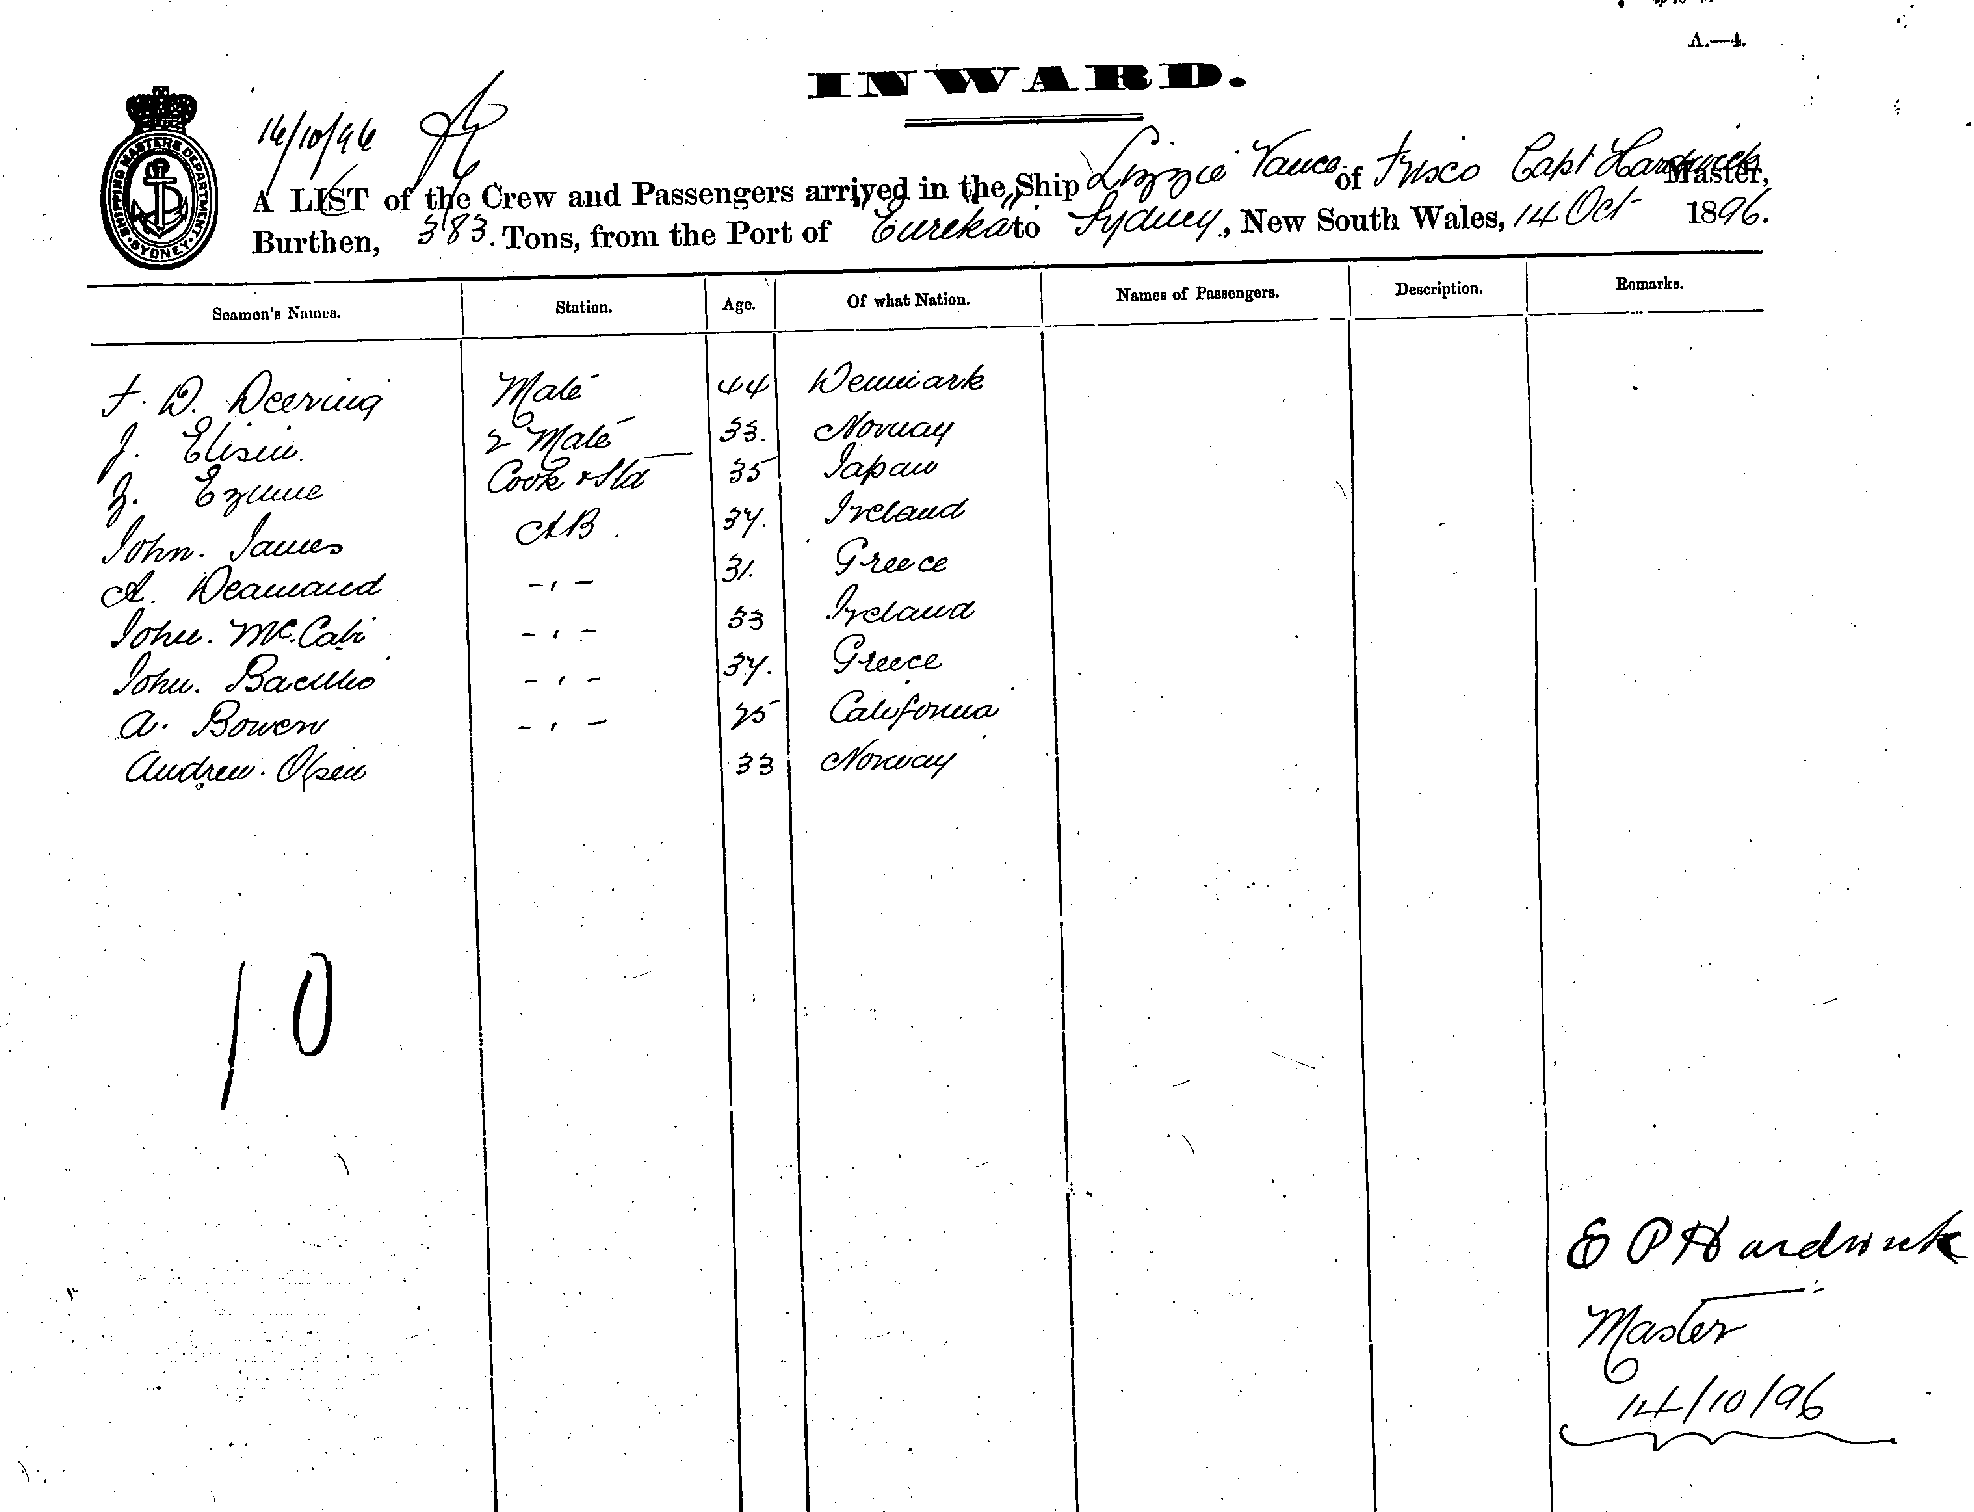 A.—4.
INWARD.
SHIPPING MASTERS DEPARTMENT SYDNEY
14/10/96
A LIST of the Crew and Passengers arrived in the Ship Lizzie Vance of Frisco Capt Hardwick Master,
Burthen, 383. Tons, from the Port of Eureka to Sydney, New South Wales, 14 Oct 1896.
Seamen's Names. Station. Age. Of what Nation. Names of Passengers. Description. Remarks.
F. D. Deering Mate 44 Denmark
J. Elisin. 2 Mate 33. Norway
Cook & Std 35 Japan
John. James AB. 37. Ireland
A. Deamand -,- 31. Greece
John. McCabi -,- 33 Ireland
John. -,- 37. Greece
A. Bowen -,- 25 California
Andrew. Olsen 33 Norway
10
E P Hardwick
Master
14/10/96